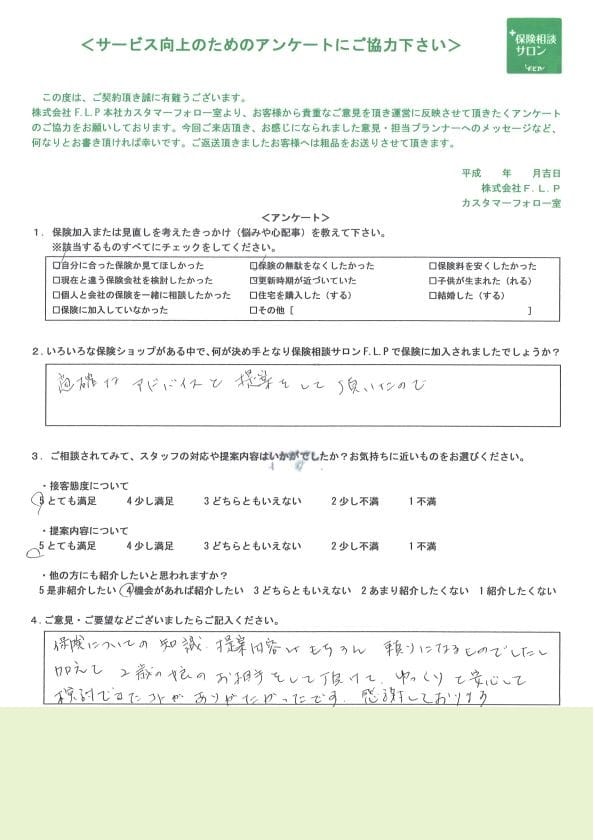 ＜サービス向上のためのアンケートにご協力下さい＞
保険相談
サロン
F.L.P
この度は、ご契約頂き誠に有難うございます。
株式会社F.L.P本社カスタマーフォロー室より、お客様から貴重なご意見を頂き運営に反映させて頂きたくアンケート
のご協力をお願いしております。今回ご来店頂き、お感じになられました意見・担当プランナーへのメッセージなど、
何なりとお書き頂ければ幸いです。ご返送頂きましたお客様へは粗品をお送りさせて頂きます。
平成　年　月吉日
株式会社F.L.P
カスタマーフォロー室
＜アンケート＞
1．保険加入または見直しを考えたきっかけ（悩みや心配事）を教えて下さい。
※該当するものすべてにチェックをしてください。
□自分に合った保険か見てほしかった　□保険の無駄をなくしたかった　□保険料を安くしたかった
□現在と違う保険会社を検討したかった　□更新時期が近づいていた　□子供が生まれた（れる）
□個人と会社の保険を一緒に相談したかった　□住宅を購入した（する）　□結婚した（する）
□保険に加入していなかった　□その他［　］
2．いろいろな保険ショップがある中で、何が決め手となり保険相談サロンF.L.Pで保険に加入されましたでしょうか？
適確な アドバイスと 提案をして 頂いたので
3．ご相談されてみて、スタッフの対応や提案内容はいかがでしたか？お気持ちに近いものをお選びください。
・接客態度について
5とても満足　4少し満足　3どちらともいえない　2少し不満　1不満
・提案内容について
5とても満足　4少し満足　3どちらともいえない　2少し不満　1不満
・他の方にも紹介したいと思われますか？
5是非紹介したい　4機会があれば紹介したい　3どちらともいえない　2あまり紹介したくない　1紹介したくない
4．ご意見・ご要望などございましたらご記入ください。
保険についての知識、提案内容はもちろん 頼りになるものでしたし
加えて 2歳の娘のお相手をして頂けて、ゆっくりと安心して
検討できたコトがありがたかったです。感謝しております